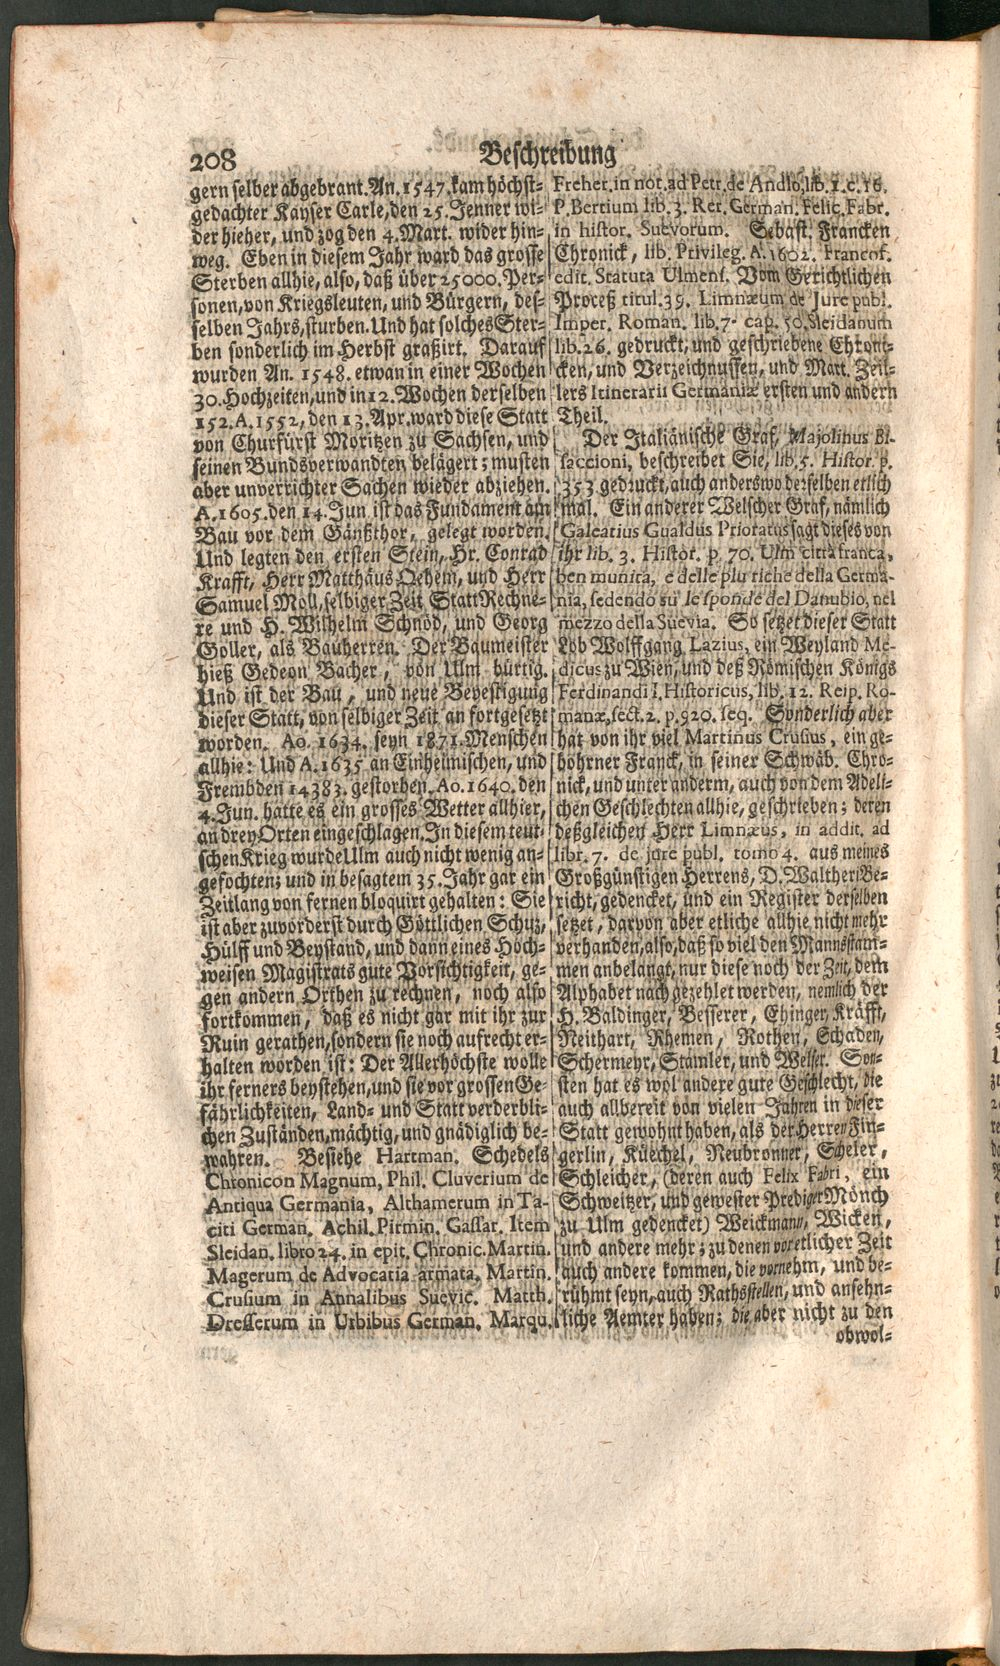 208
Beschreibung
gern selber abgebrant. An. 1547. kam höchst-
gedachter Kayser Carle, den 25. Jenner wi-
der hieher, und zog den 4. Mart. wider hin-
weg. Eben in diesem Jahr ward das grosse
Sterben allhie, also, daß über 25000. Per-
sonen, von Kriegsleuten, und Bürgern, des-
selben Jahrs, sturben. Und hat solches Ster-
ben sonderlich im Herbst graßirt. Darauf
wurden An. 1548. etwan in einer Wochen
30. Hochzeiten, und in 12. Wochen derselben
152. A. 1552, den 13. Apr. ward diese Statt
von Churfürst Moritzen zu Sachsen, und
seinen Bundsverwandten belägert; musten
aber unverrichter Sachen wieder abziehen.
A. 1605. den 14. Jun. ist das Fundament am
Bau vor dem Gänßthor, gelegt worden.
Und legten den ersten Stein, Hr. Conrad
Krafft, Herr Matthäus Oehem, und Herr
Samuel Moll, selbiger Zeit StattRechne-
re und H. Wilhelm Schnöd, und Georg
Goller, als Bauherren. Der Baumeister
hieß Gedeon Bacher, von Ulm bürtig.
Und ist der Bau, und neue Bevestigung
dieser Statt, von selbiger Zeit an fortgesetzt
worden. Ao. 1634. seyn 1871. Menschen
allhie: Und A. 1635 an Einheimischen, und
Frembden 14383. gestorben. Ao. 1640. den
4. Jun. hatte es ein grosses Wetter allhier,
an drey Orten eingeschlagen. In diesem teut-
schen Krieg wurde Ulm auch nicht wenig an-
gefochten; und in besagtem 35. Jahr gar ein
Zeitlang von fernen bloquirt gehalten: Sie
ist aber zuvorderst durch Göttlichen Schuz,
Hülff und Beystand, und dann eines Hoch-
weisen Magistrats gute Vorsichtigkeit, ge-
gen andern Orthen zu rechnen, noch also
fortkommen, daß es nicht gar mit ihr zur
Ruin gerathen, sondern sie noch aufrecht er-
halten worden ist: Der Allerhöchste wolle
ihr ferners beystehen, und sie vor grossen Ge-
fährlichkeiten, Land- und Statt verderbli-
chen Zuständen, mächtig, und gnädiglich be-
wahren. Besiehe Hartman. Schedels
Chronicon Magnum, Phil. Cluverium de
Antiqua Germania, Althamerum in Ta-
citi German. Achil. Pirmin. Gassar. Item
Sleidan. libro 24. in epit. Chronic. Martin.
Magerum de Advocatia armata. Martin.
Crusium in Annalibus Suevic. Matth.
Dresserum in Urbibus German. Marqu.
Freher. in not. ad Petr. de Andlo. lib. 1. c. 16.
P. Bertium lib. 3. Rer. German. Felic. Fabr.
in histor. Suevorum. Sebast. Francken
Chronick, lib. Privileg. A. 1602. Francof.
edit. Statuta Ulmens. Vom Gerichtlichen
Proceß titul. 39. Limnæum de Jure publ.
Imper. Roman. lib. 7. cap. 50. Sleidanum
lib. 26. gedruckt, und geschriebene Chroni-
cken, und Verzeichnussen, und Mart. Zeil-
lers Itinerarii Germaniæ ersten und andern
Theil.
Der Italiänische Graf, Majolinus Bi-
saccioni, beschreibet Sie, lib. 5. Histor. p.
353 gedruckt, auch anderswo derselben etlich
mal. Ein anderer Welscher Graf, nämlich
Galeatius Gualdus Prioratus sagt dieses von
ihr lib. 3. Histor. p. 70. Ulm città franca,
ben munita, e delle piu riche della Germa-
nia, sedendo su le sponde del Danubio, nel
mezzo della Suevia. So setzet dieser Statt
Lob Wolffgang Lazius, ein Weyland Me-
dicus zu Wien, und deß Römischen Königs
Ferdinandi I. Historicus, lib. 12. Reip. Ro-
manæ, sect. 2. p. 920. seq. Sonderlich aber
hat von ihr viel Martinus Crusius, ein ge-
bohrner Franck, in seiner Schwäb. Chro-
nick, und unter anderm, auch von dem Adeli-
chen Geschlechten allhie, geschrieben; deren
deßgleichen Herr Limnæus, in addit. ad
libr. 7. de jure publ. tomo 4. aus meines
Großgünstigen Herrens, D. Waltheri Be-
richt, gedencket, und ein Register derselben
setzet, darvon aber etliche allhie nicht mehr
verhanden, also, daß so viel den Mannsstam-
men anbelangt, nur diese noch der Zeit, dem
Alphabet nach gezehlet werden, nemlich der
H. Baldinger, Besserer, Ehinger, Kräfft,
Neithart, Rhemen, Rothen, Schaden,
Schermeyr, Stamler, und Welser. Son-
sten hat es wol andere gute Geschlecht, die
auch allbereit von vielen Jahren in dieser
Statt gewohnt haben, als der Herren Fin-
gerlin, Küechel, Neubronner, Scheler,
Schleicher, (deren auch Felix Fabri, ein
Schweitzer, und gewester Prediger Mönch
zu Ulm gedencket) Weickmann, Wicken,
und andere mehr; zu denen vor etlicher Zeit
auch andere kommen, die vornehm, und be-
rühmt seyn, auch Rathsstellen, und ansehn-
liche Aemter haben; die aber nicht zu den
obwol-